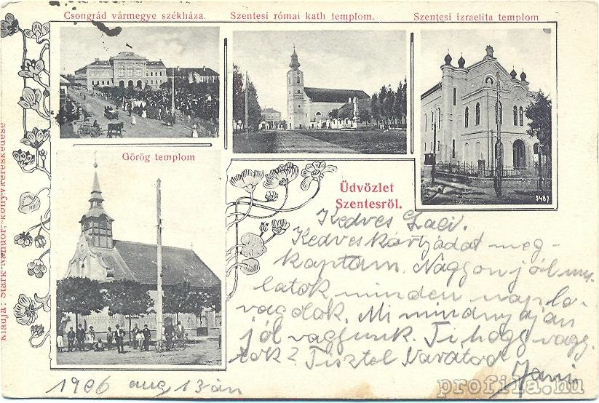 Csongrád vármegye székháza.
Szentesi római kath templom.
Szentesi izraelita templom
Görög templom
Üdvözlet
Szentesről.
3487
Kedves Laci.
Kedves kártyádat meg-
kaptam. Nagyon jól mu-
latok minden nap lo-
vagolok. Mi mindnyájan
jól vagyunk. Ti hogy vagy-
tok? Tisztel Barátod
Jani
1906 aug 13-án
profila.hu